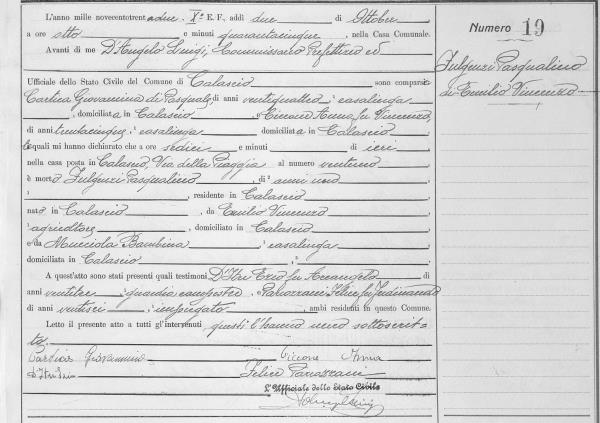 L'anno mille novecentotrentadue. X° E. F., addì due di Ottobre
a ore otto e minuti quarantacinque, nella Casa Comunale.
Avanti di me D'Angelo Luigi, Commissario Prefettizio ed
Ufficiale dello Stato Civile del Comune di Calascio sono comparsi
Giovannina di Pasquale, di anni ventiquattro, casalinga
, domiciliata in Calascio, e Ciccone Anna fu Vincenzo,
di anni trentacinque, casalinga domiciliata in Calascio,
le quali mi hanno dichiarato che a ore sedici e minuti di ieri
nella casa posta in Calascio, Via della Piaggia al numero ventuno
è morto Fulgenzi Pasqualino, di anni uno
, residente in Calascio
nato in Calascio, da Emilio Vincenzo
agricoltore, domiciliato in Calascio
e da Mucciola Bambina, casalinga,
domiciliata in Calascio,
A quest'atto sono stati presenti quali testimoni D'Itri Ezio fu Arcangelo di
anni ventitre, guardia campestre e Panozzani Felice fu Ferdinando
di anni ventisei, impiegato, ambi residenti in questo Comune.
Letto il presente atto a tutti gl'intervenuti, questi l'hanno meco sottoscrit-
to.
Giovannina Ciccone Anna
D'Itri Ezio Felice Panozzani
L'Ufficiale dello Stato Civile
Numero 19
Fulgenzi Pasqualino
di Emilio Vincenzo